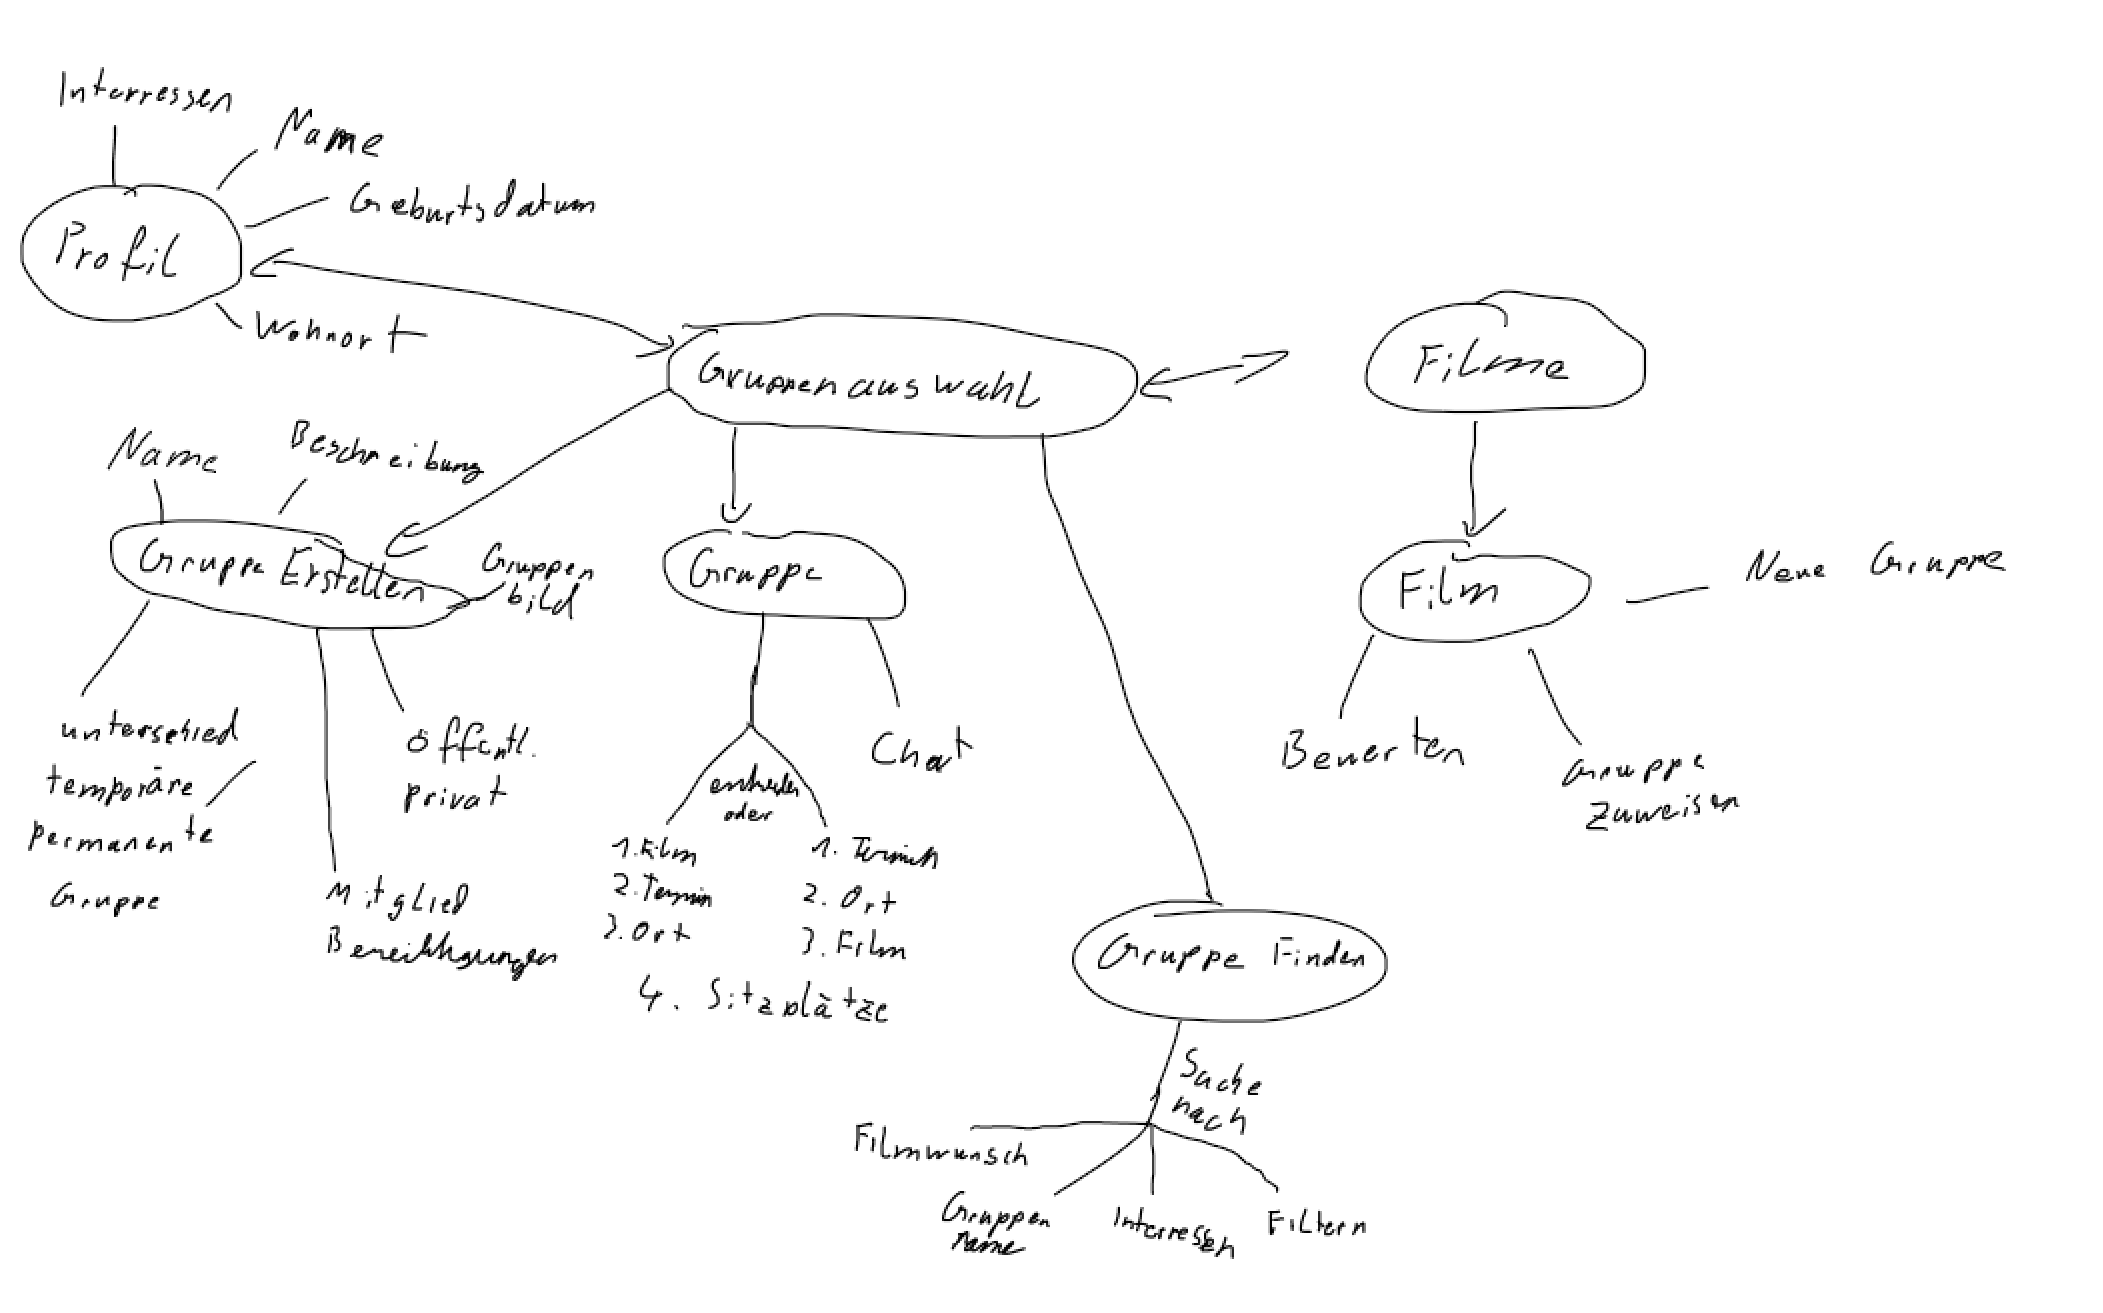 Interressen
Name
Geburtsdatum
Profil
Wohnort
Gruppenauswahl
Filme
Name
Beschreibung
Gruppe Erstellen
Gruppen
bild
Gruppe
Film
Neue Gruppe
unterschied
temporäre
permanente
Gruppe
öffentl.
privat
Mitglied
Chat
entweder
oder
1. Film
2. Termin
3. Ort
1. Termin
2. Ort
3. Film
4. Sitzplätze
Bewerten
Gruppe
zuweisen
Gruppe Finden
Suche
nach
Filmwunsch
Gruppen
name
Interressen
Filtern